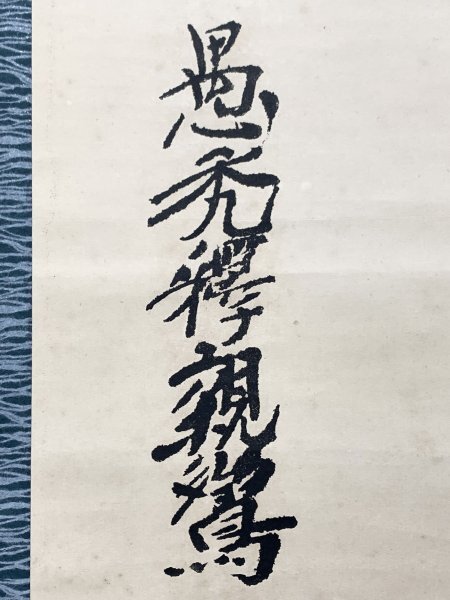 愚禿釋親鸞